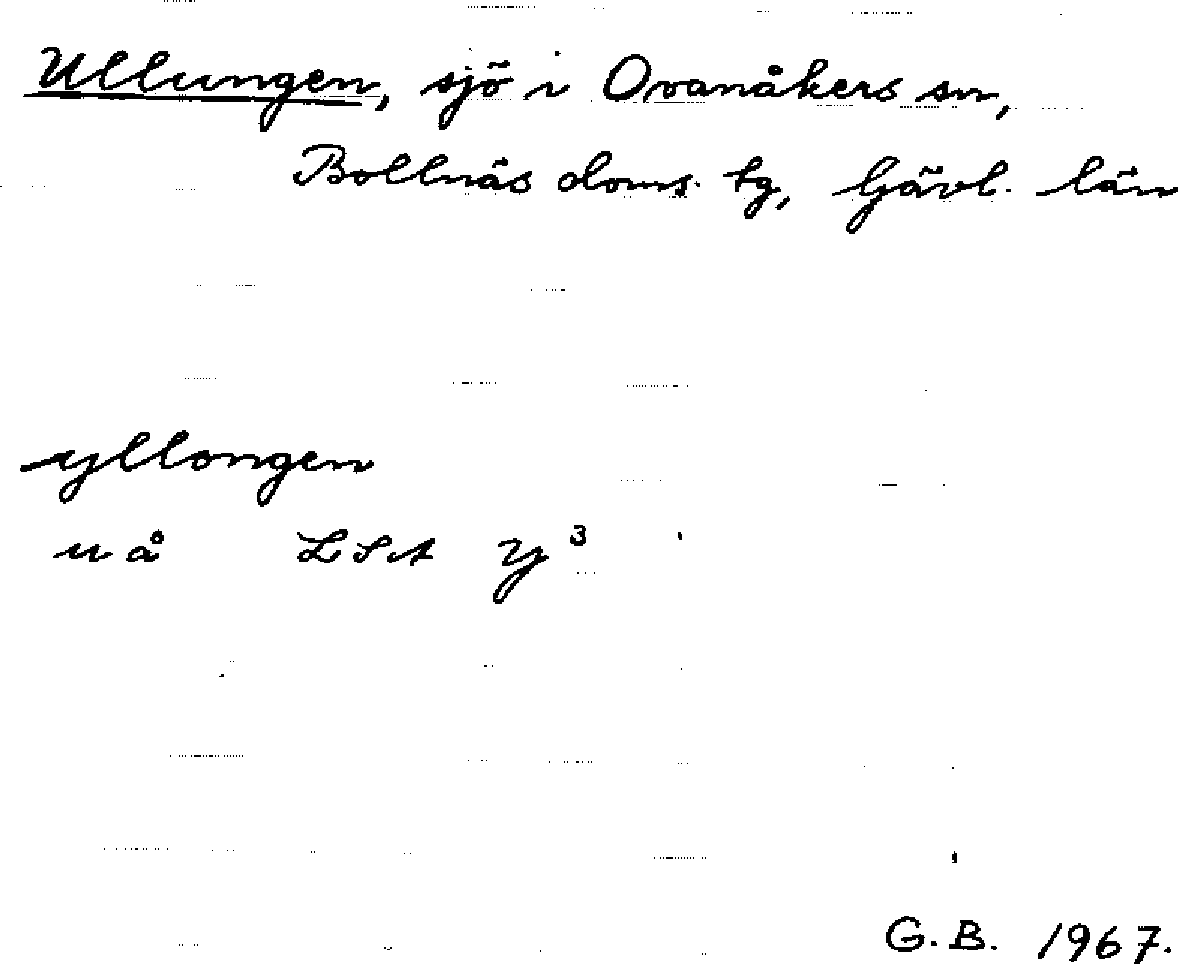 Ullungen, sjö i Ovanåkers sn,
Bollnäs doms. tg, Gävl. län
yllongen
u å LSA Y³
G.B. 1967.